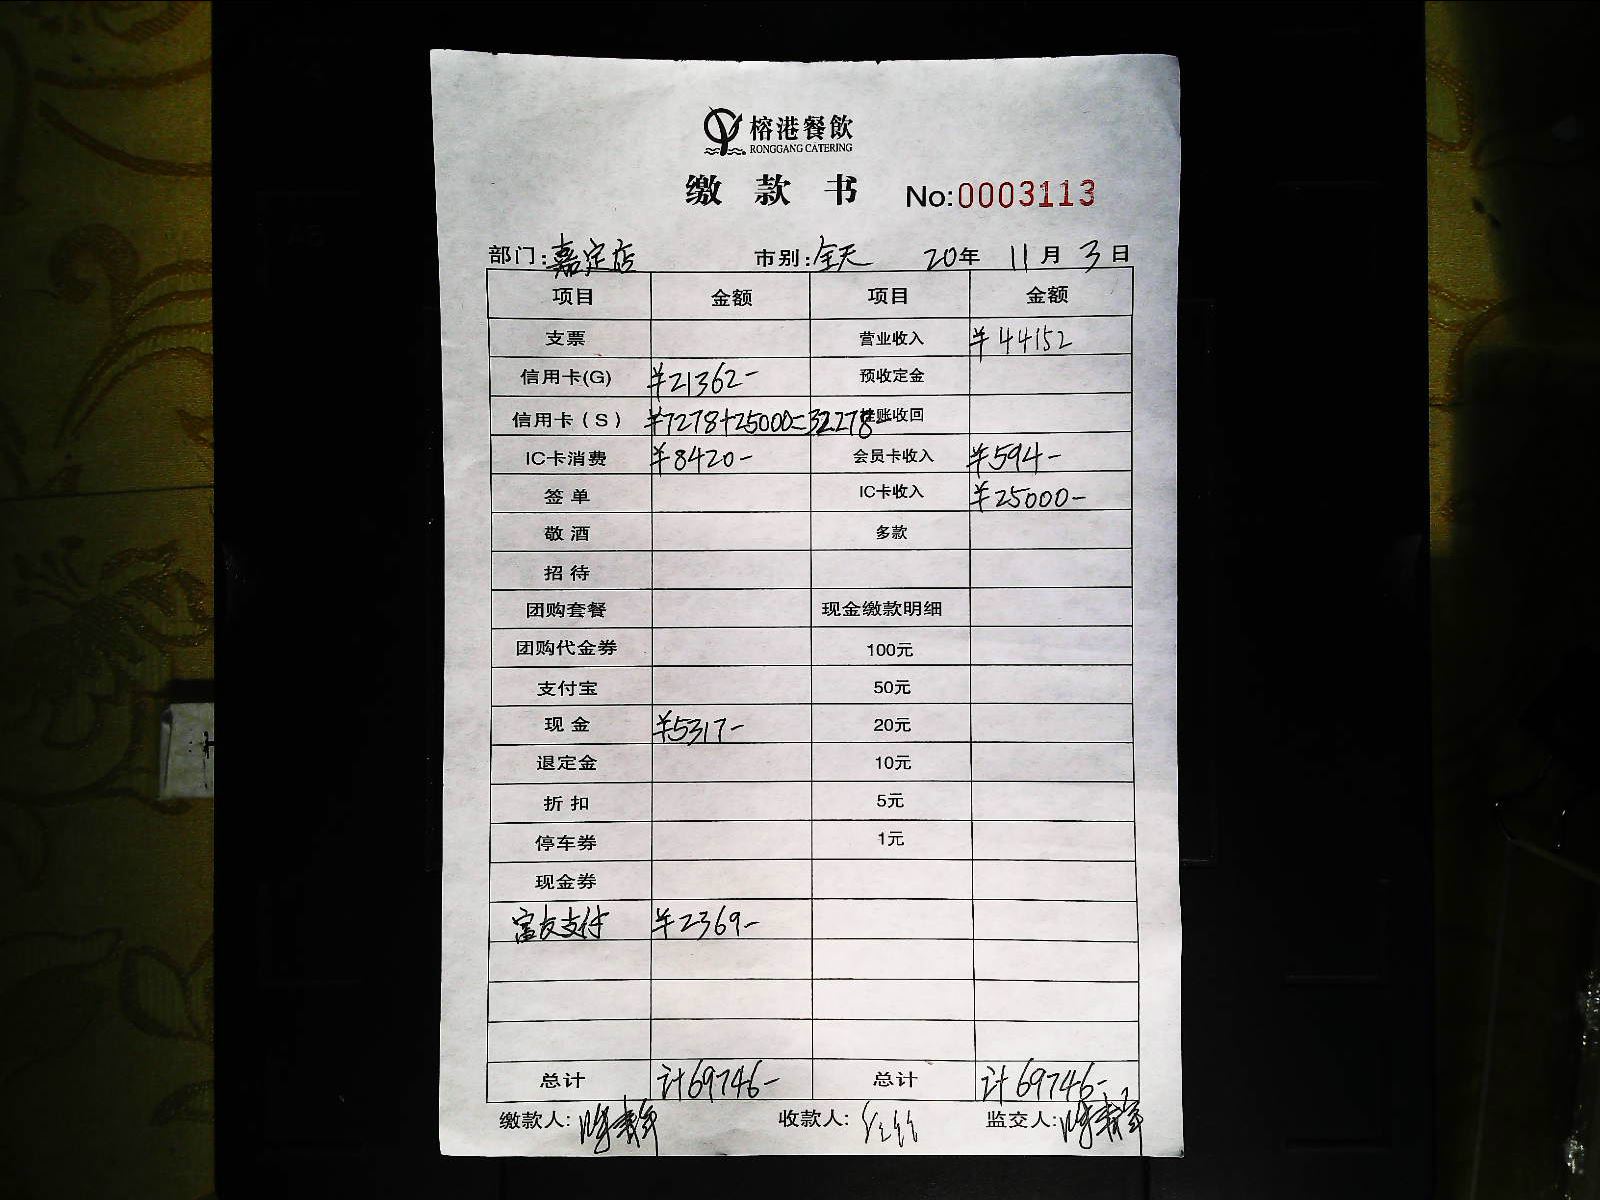 榕港餐飲
RONGGANG CATERING
缴款书 No:0003113
部门:嘉定店 市别:全天 20年 11月 3日
项目 金额 项目 金额
支票 营业收入 ¥44152
信用卡(G) ¥21362- 预收定金
信用卡(S) ¥7278+25000=32278 挂账收回
IC卡消费 ¥8420- 会员卡收入 ¥594-
签单 IC卡收入 ¥25000-
敬酒 多款
招待
团购套餐 现金缴款明细
团购代金券 100元
支付宝 50元
现金 ¥5317- 20元
退定金 10元
折扣 5元
停车券 1元
现金券
富友支付 ¥2369-
总计 计69746- 总计 计69746-
缴款人: 收款人: 监交人: